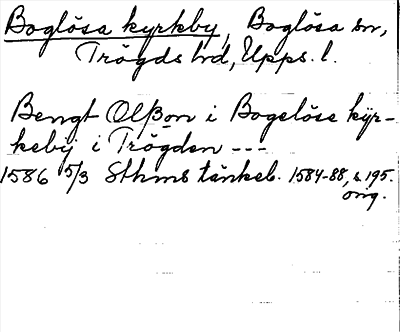 Boglösa kyrkby, Boglösa sn,
Trögds hd, Upps. l.
Bengt Olßon i Bogelöse kyr-
keby i Trögden ---
1586 5/3 Sthms tänkeb. 1584-88, s. 195.
orig.